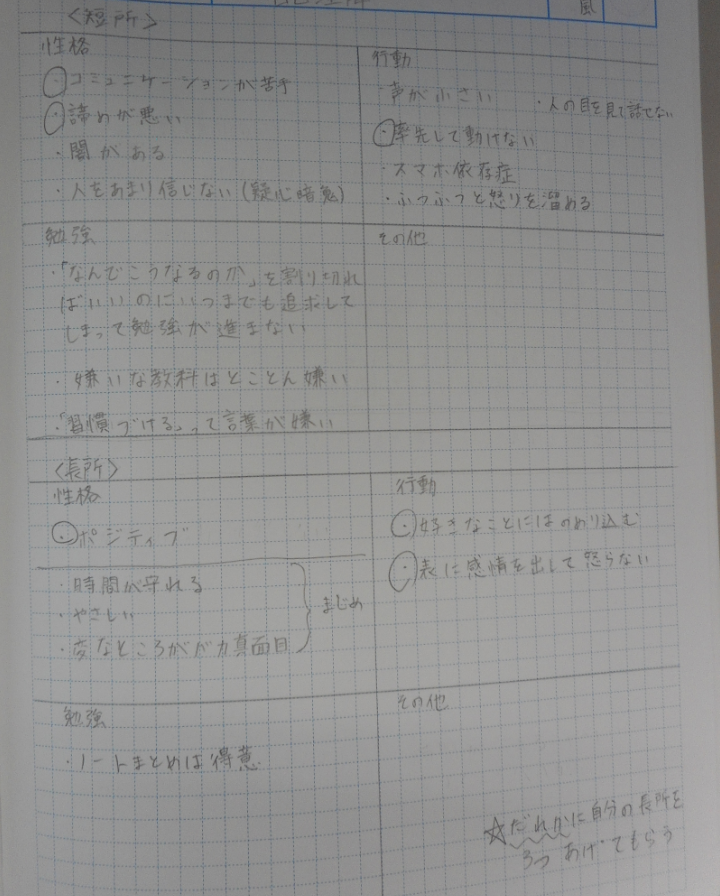 風
〈短所〉
性格
・コミュニケーションが苦手
・諦めが悪い
・闇がある
・人をあまり信じない(疑心暗鬼)
行動
・声が小さい ・人の目を見て話せない
・率先して動けない
・スマホ依存症
・ふつふつと怒りを溜める
勉強
・「なんでこうなるのか」を割り切れ
ばいいのにいつまでも追求して
しまって勉強が進まない
・嫌いな教科はとことん嫌い
・「習慣づける」って言葉が嫌い
その他
〈長所〉
性格
・ポジティブ
・時間が守れる
・やさしい
・変なところがバカ真面目
まじめ
行動
・好きなことにはのめり込む
・表に感情を出して怒らない
勉強
・ノートまとめは得意
その他
☆だれかに自分の長所を
3つあげてもらう